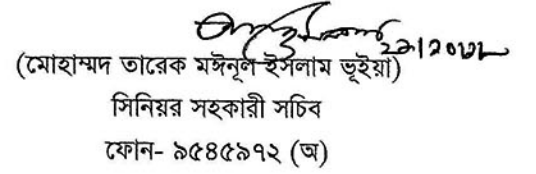 (মোহাম্মদ তারেক মঈনূল ইসলাম ভূইয়া)
সিনিয়র সহকারী সচিব
ফোন- ৯৫৪৫৯৭২ (অ)